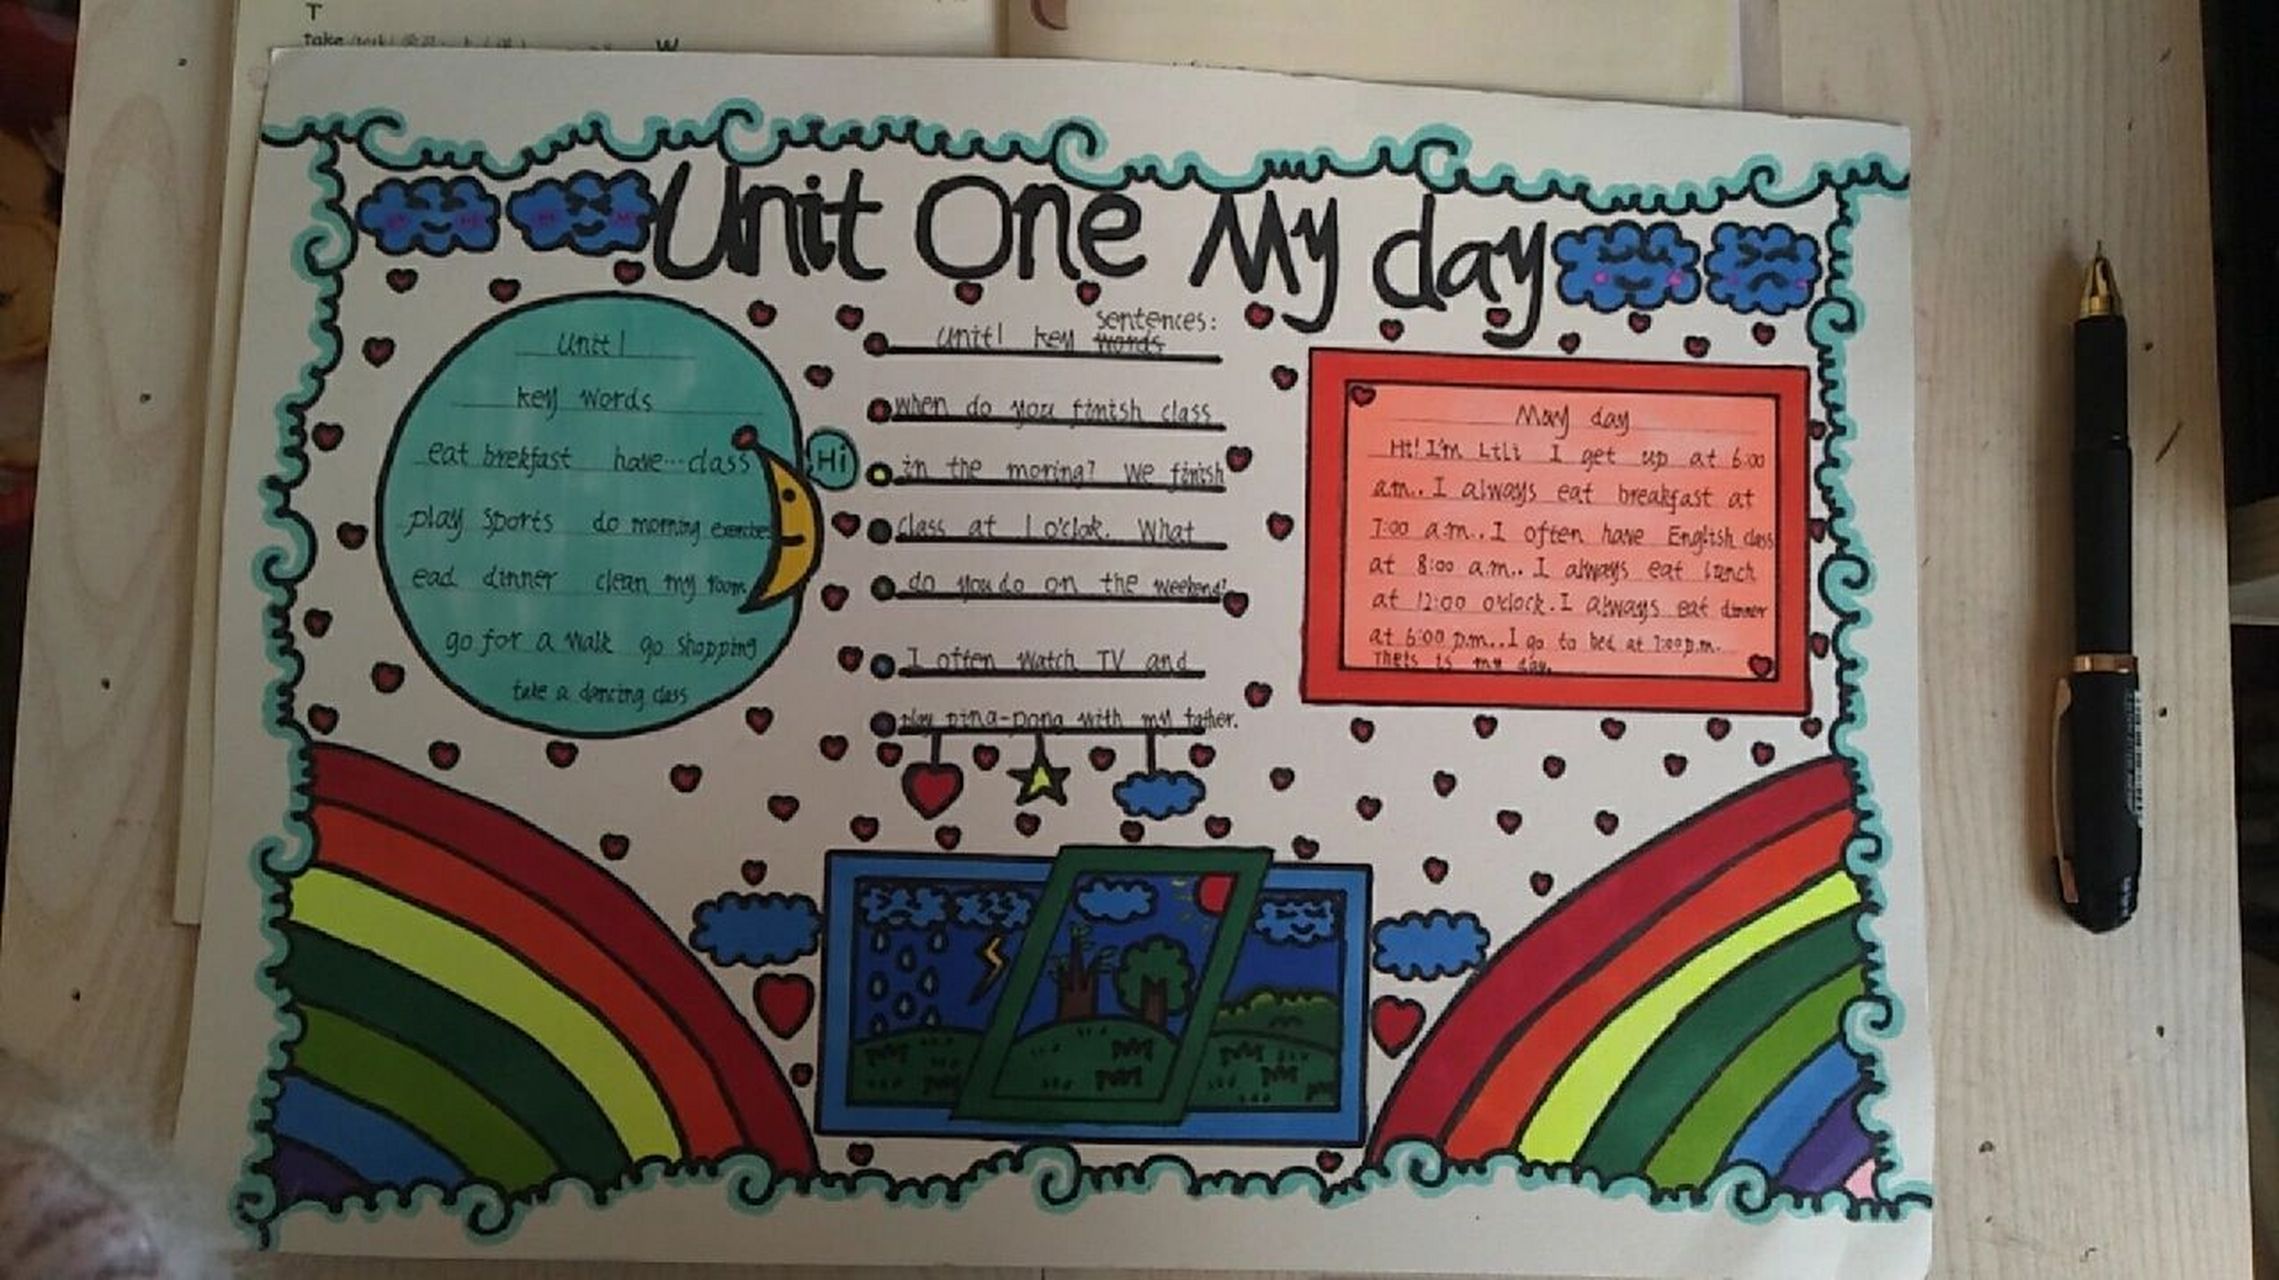 T
Take
W
Unit One My day
Unit1
key words
eat brekfast have...class
play sports do morning exercises
ead dinner clean my room
go for a walk go shopping
take a dancing class
Hi
sentences:
Unit1 key words
when do you finish class
in the moring? We finish
class at 1 o'clok. What
do you do on the weekend?
I often watch TV and
play ping-pong with my father.
May day
Hi! I'm Lili I get up at 6:00
a.m.. I always eat breakfast at
7:00 a.m.. I often have English class
at 8:00 a.m.. I always eat lunch
at 12:00 o'clock. I always eat dinner
at 6:00 p.m.. I go to bed at 7:00 p.m.
Thets is my day.